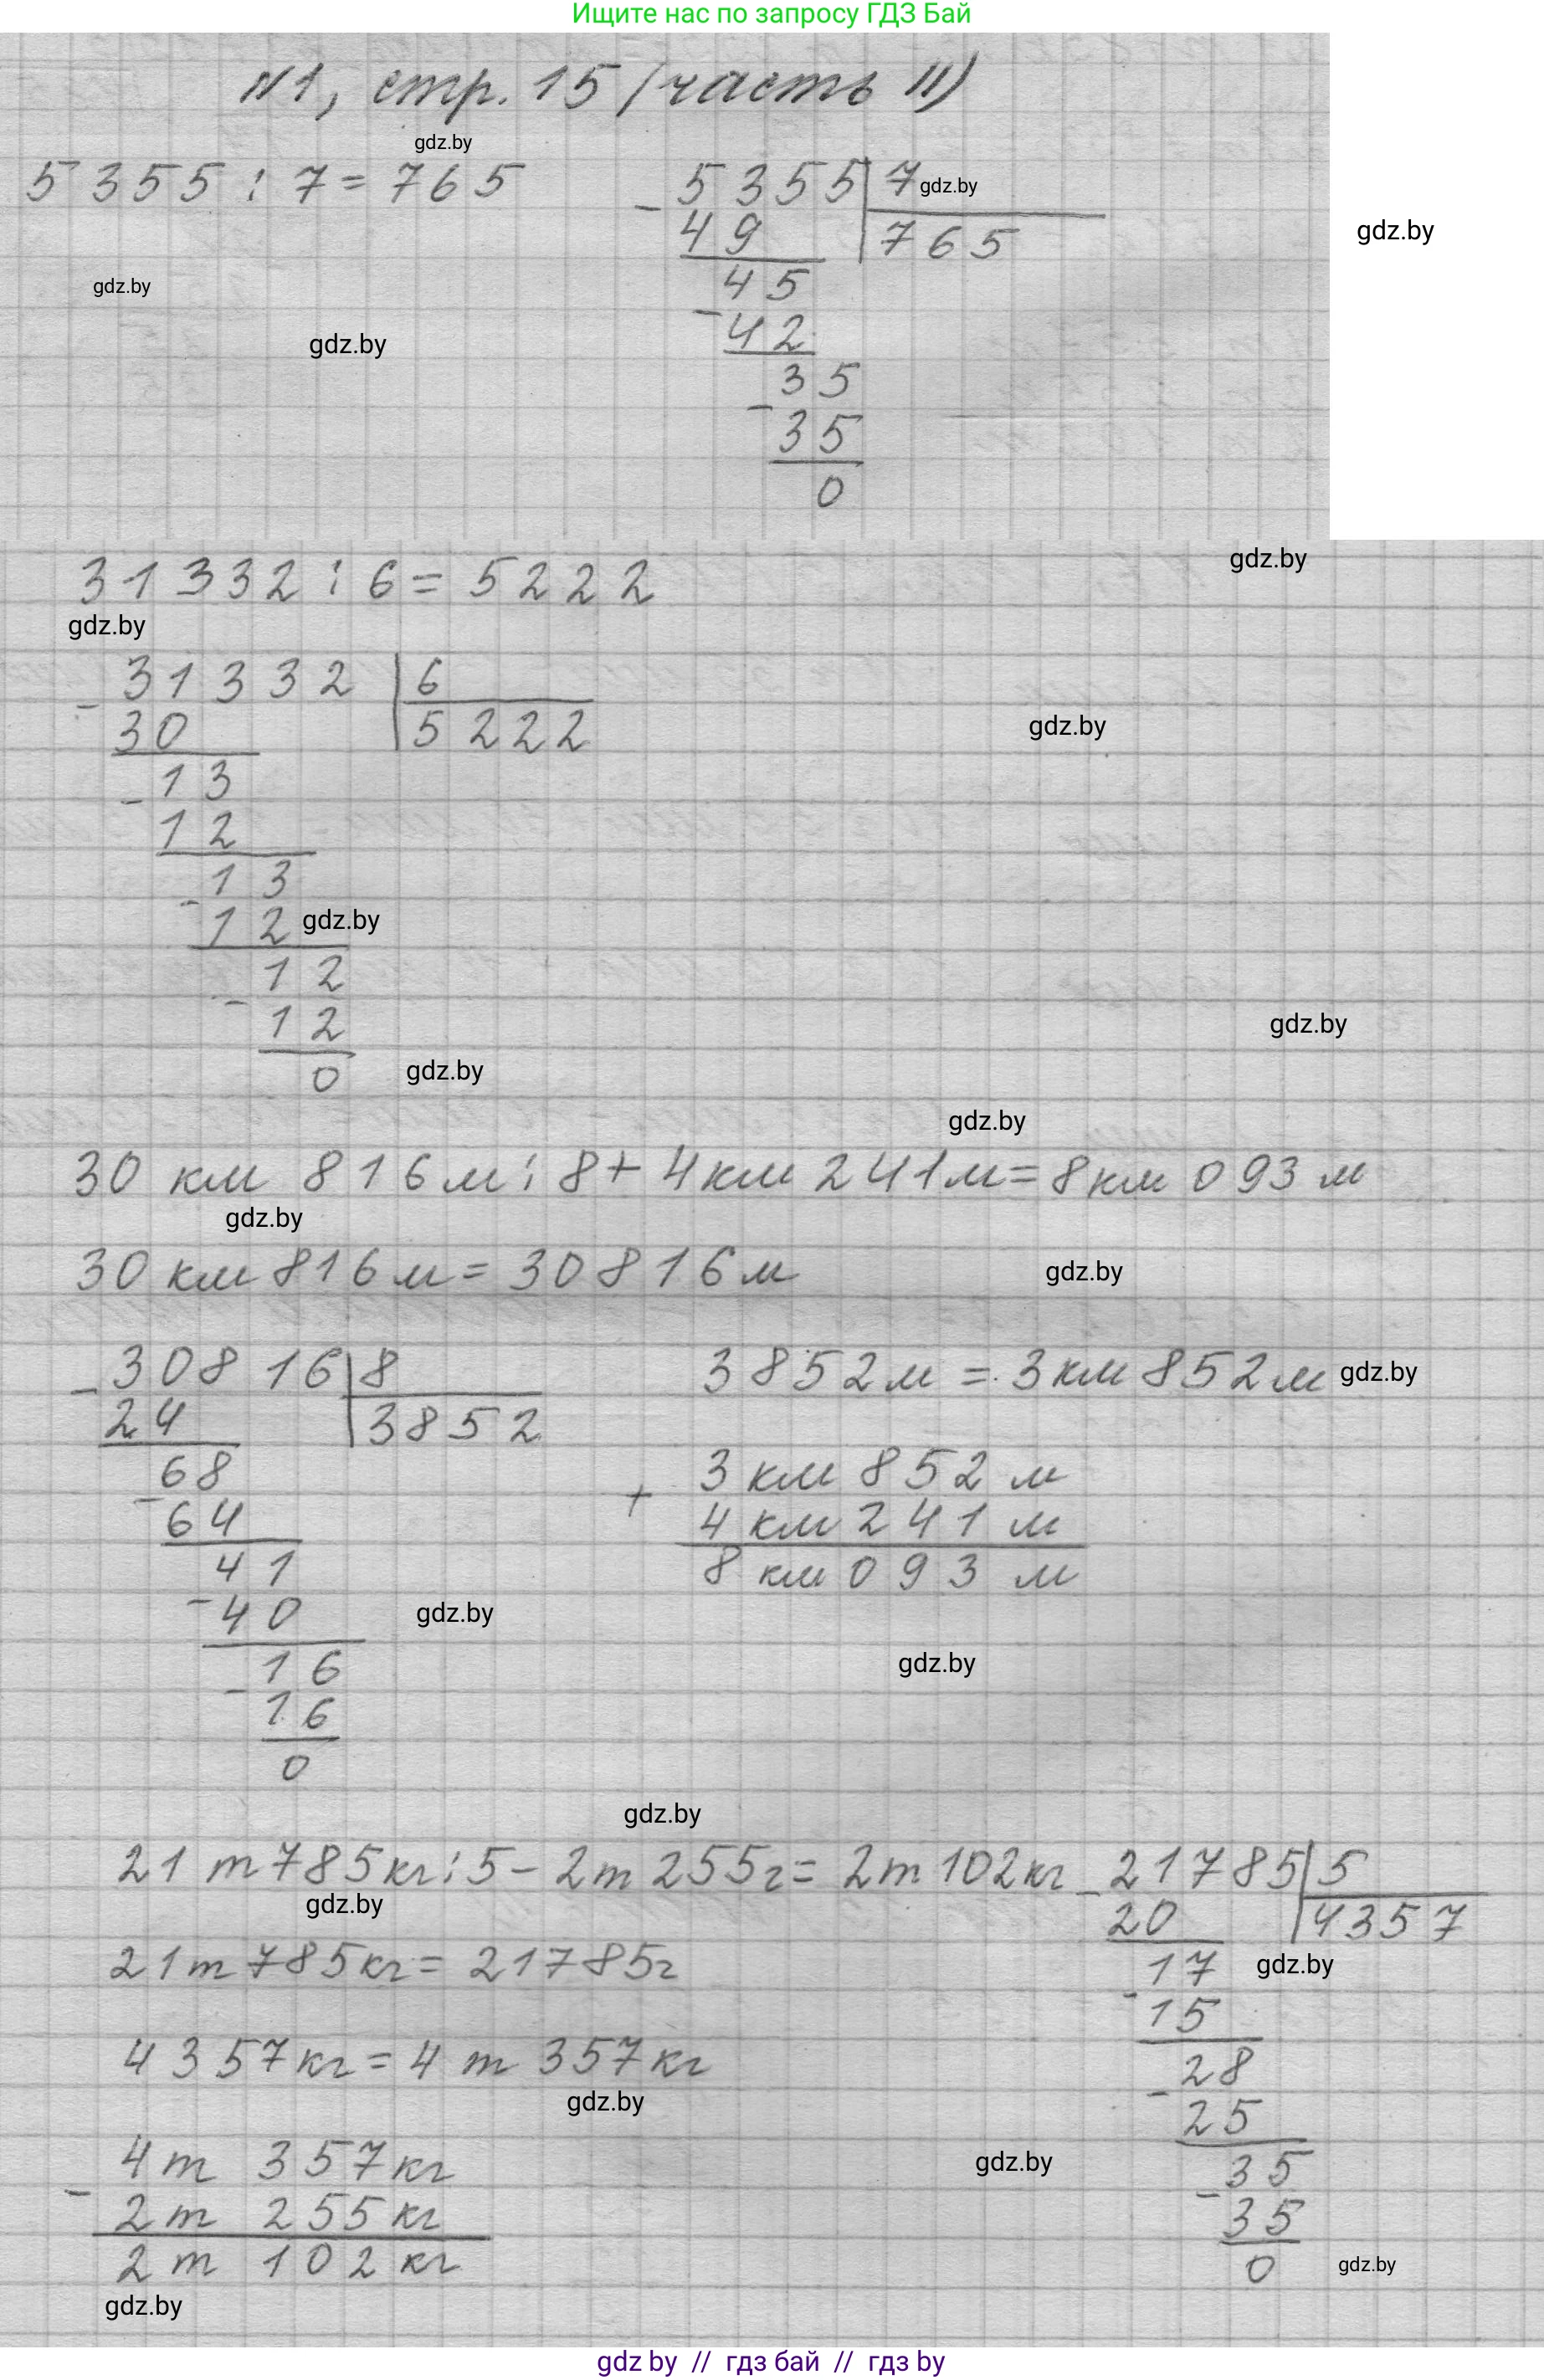 Ищите нас по запросу ГДЗ Бай
№1, стр. 15 (часть II)
gdz.by
5355 : 7 = 765
5355 7
gdz.by
- 49 765
gdz.by
45
gdz.by
- 42
gdz.by
35
- 35
0
31332 : 6 = 5222
gdz.by
gdz.by
31332 6
- 30 5222
gdz.by
13
- 12
13
- 12
gdz.by
12
- 12
gdz.by
0
gdz.by
gdz.by
30 км 816 м : 8 + 4 км 241 м = 8 км 093 м
gdz.by
30 км 816 м = 30816 м
gdz.by
30816 8
- 24 3852
68
- 64
41
- 40
gdz.by
16
- 16
0
3852 м = 3 км 852 м
gdz.by
3 км 852 м
+ 4 км 241 м
8 км 093 м
gdz.by
gdz.by
21 т 785 кг : 5 - 2 т 255 г = 2 т 102 кг
gdz.by
21 т 785 кг = 21785 г
4357 кг = 4 т 357 кг
gdz.by
4 т 357 кг
- 2 т 255 кг
2 т 102 кг
gdz.by
21785 5
- 20 4357
17
gdz.by
- 15
28
- 25
gdz.by
35
- 35
0
gdz.by
gdz by // гдз бай // гдз by